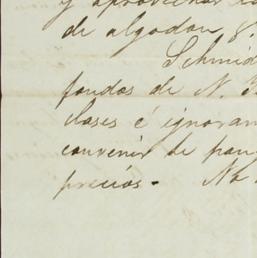 y aprovechar
de algodon &.
Schmid
fondos de N.
clases é ignoran
convenir de
precios. No